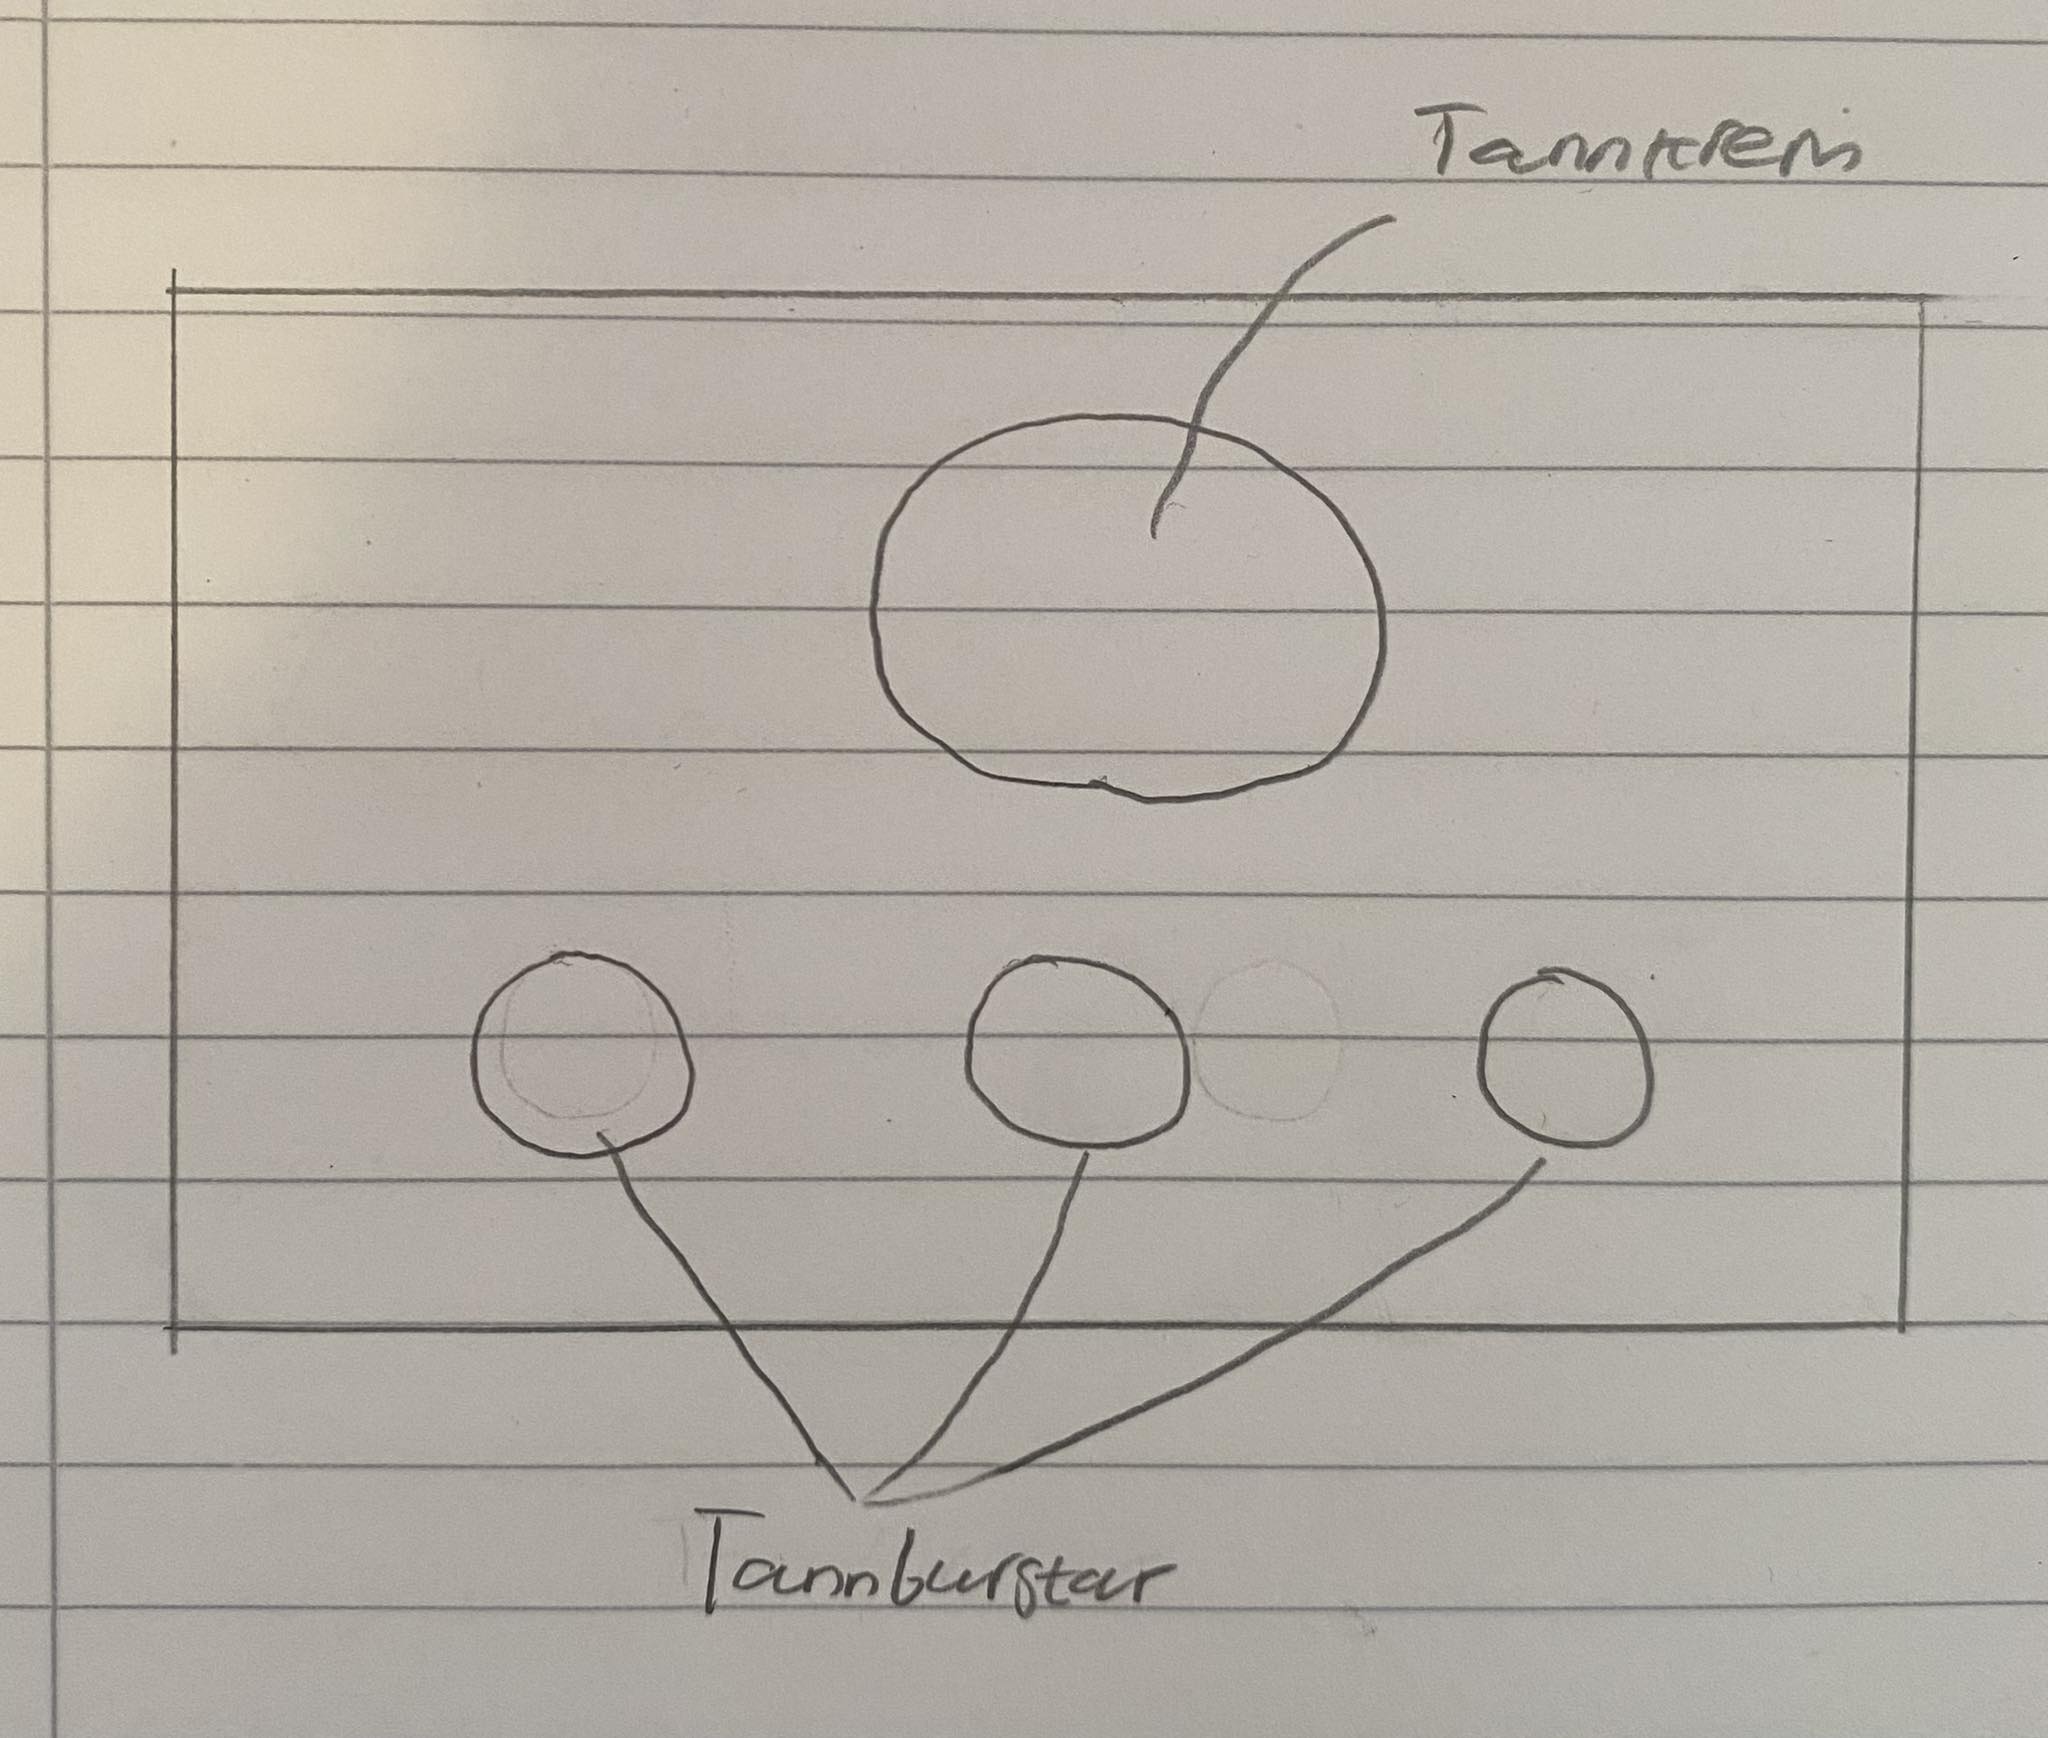 Tannkrem
Tannburstar